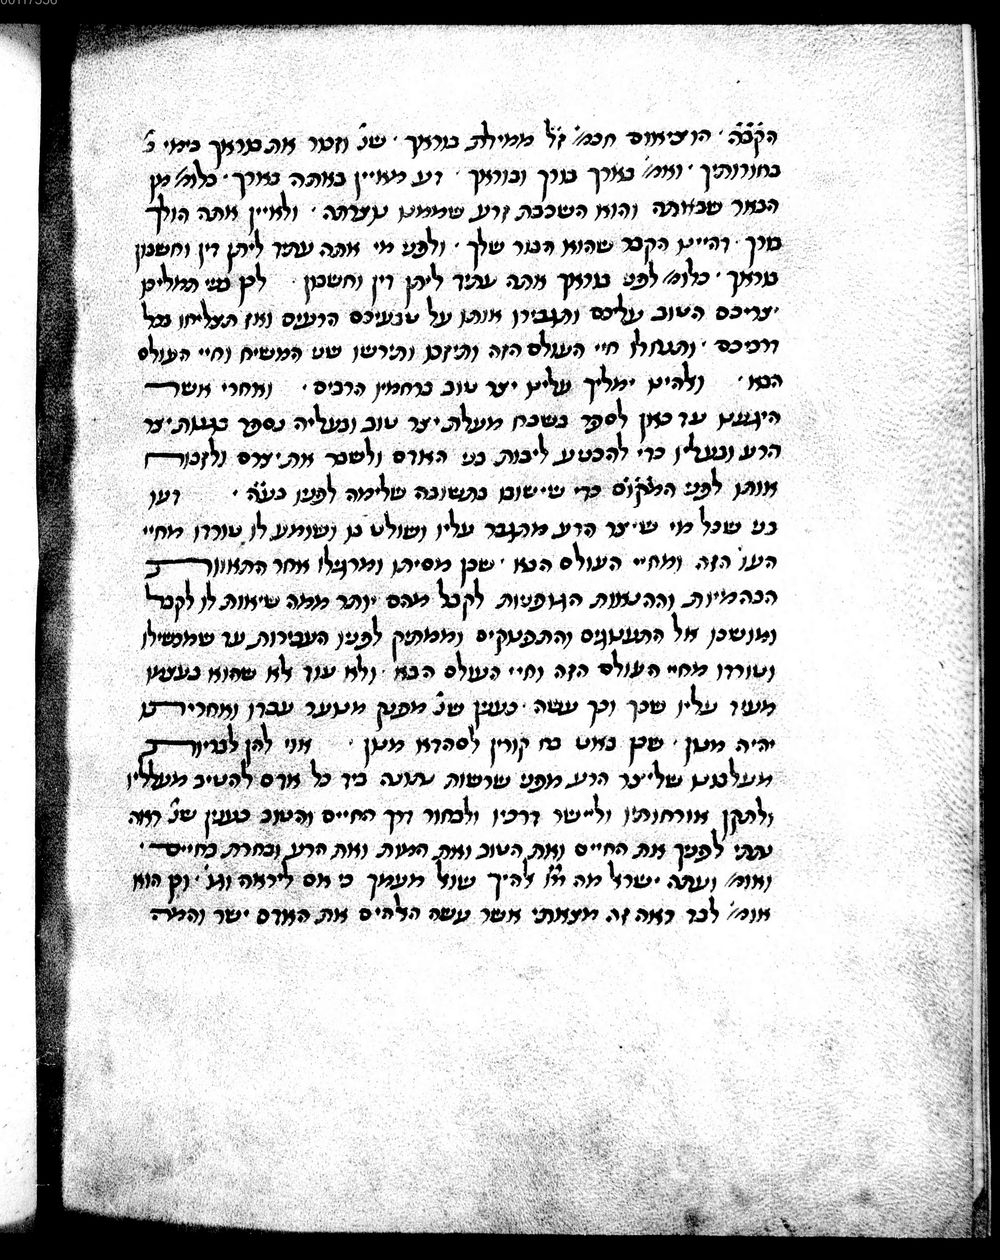 הקב"ה · הוציאום חכמ' ז"ל ממילת בוראיך · שנ' וזכור את בוראיך בימי
בחורותיך · ואמ' בארך בורך ובוראיך · דע מאיין באתה בארך · כלומ' מן
הבאר שבאתה והוא השכבת זרע שממנו נוצרתה · ולאיין אתה הולך
בורך · דהיינו הקבר שהוא הבור שלך · ולפני מי אתה עתיד ליתן דין וחשבון
בוראיך · כלומ' לפני בוראיך אתה עתיד ליתן דין וחשבון · לכן בני תמליכו
יצריכם הטוב עליכם ותגבירו אותו על טבעיכם הרעים ואז תצליחו בכל
דרכיכם · ותנחלו חיי העולם הזה ותזכו ותירשו שני המשיח וחיי העולם
הבא · ולהינו ימליך עלינו יצר טוב ברחמיו הרבים · ואחרי אשר
היגענו עד כאן לספר בשבח מעלת יצר טוב ובעליה נספר בגנות יצר
הרע ובעליו כדי להכניע ליבות בני האדם ולשבר את יצרם ולזכות
אותו לפני המקום כדי שישובו בתשובה שלימה לפניו בע"ה · דעו
בני שכל מי שיצר הרע מתגבר עליו ושולט בו ושומע לו טורדו מחיי
העו' הזה ומחיי העולם הבא · שכן מסיתו ומרגילו אחר התאוות
הבהמיות וההנאות הגופניות לקבל מהם יותר ממה שיאות לו לקבל
ומושכו אל התענוגים והתפנוקים וממתיק לפניו העבירות עד שמכשילו
וטורדו מחיי העולם הזה וחיי העולם הבא · ולא עוד אלא שהוא בעצמו
מעיד עליו שכך וכך עשה · כענין שנ' מפנק מנוער עבדו ואחריתו
יהיה מנון · שכן באט בח קורין לסהדא מנון · אני להן לבריות
מעלבונו שליצר הרע מפני שרשות נתונה ביד כל אדם להטיב מעלליו
ולתקן אורחותיו ולישר דרכיו ולבחור דרך החיים והטוב כענין שנ' ראה
נתתי לפניך את החיים ואת הטוב ואת המות ואת הרע ובחרת בחיים ·
ואומ' ועתה ישראל מה יי' אלהיך שואל מעמך כי אם ליראה וגו' · וכן הוא
אומ' לבד ראה זה מצאתי אשר עשה האלהים את האדם ישר והמה